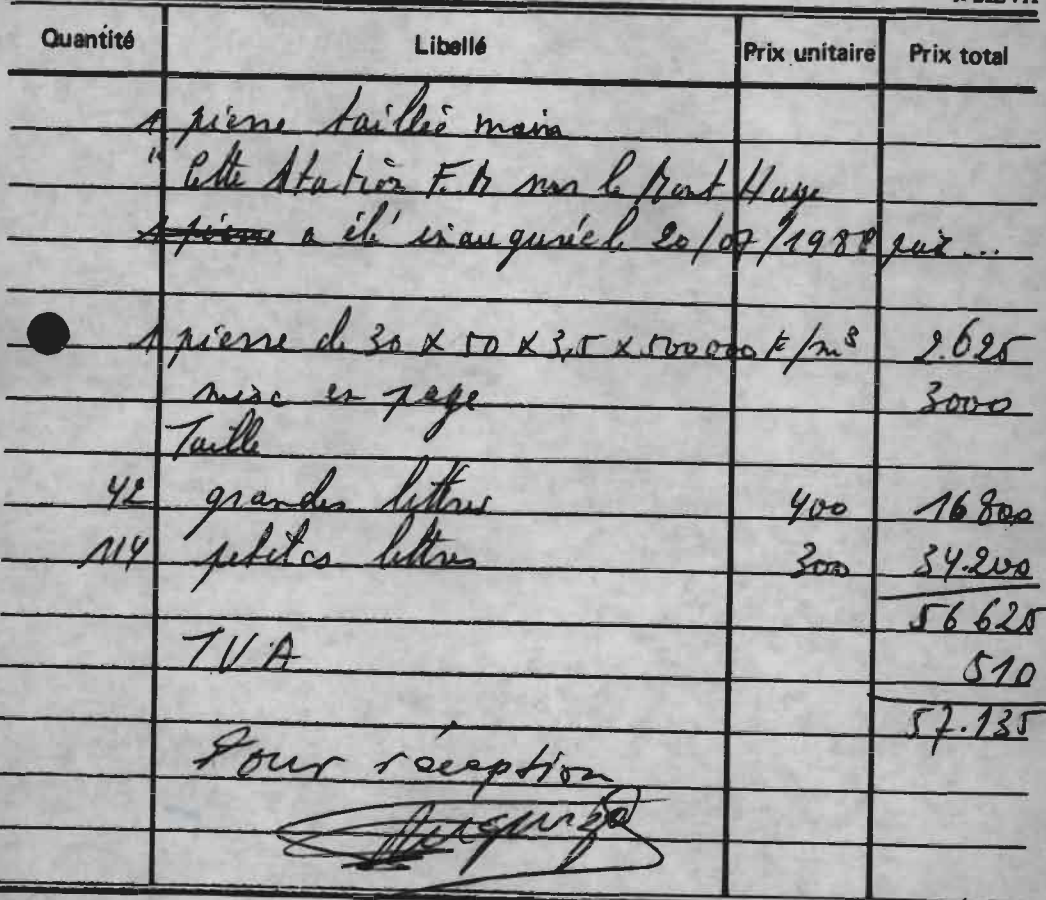 Quantité Libellé Prix unitaire Prix total
1 pierre taillée main
" Cette Station F.M sur le Mont Huye
1 pierre a été inaugurée le 20/07/1988 par ...
1 pierre de 30 x 50 x 3,5 x 500000 F/m3 2.625
mise en page 3000
Taille
42 grandes lettres 400 16800
114 petites lettres 300 34.200
56625
TVA 510
57.135
Pour réception